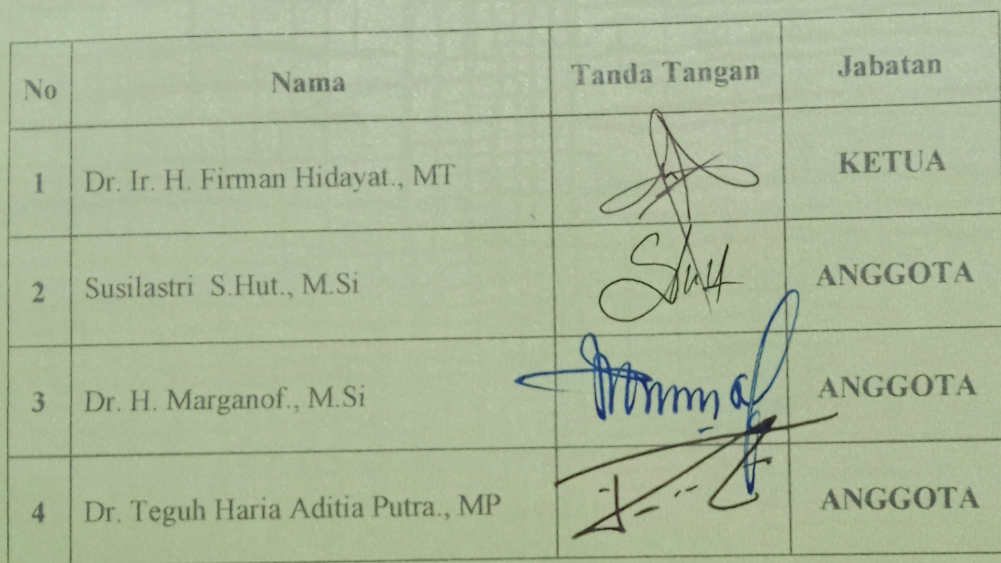 No Nama Tanda Tangan Jabatan
1 Dr. Ir. H. Firman Hidayat., MT KETUA
2 Susilastri S.Hut., M.Si ANGGOTA
3 Dr. H. Marganof., M.Si ANGGOTA
4 Dr. Teguh Haria Aditia Putra., MP ANGGOTA